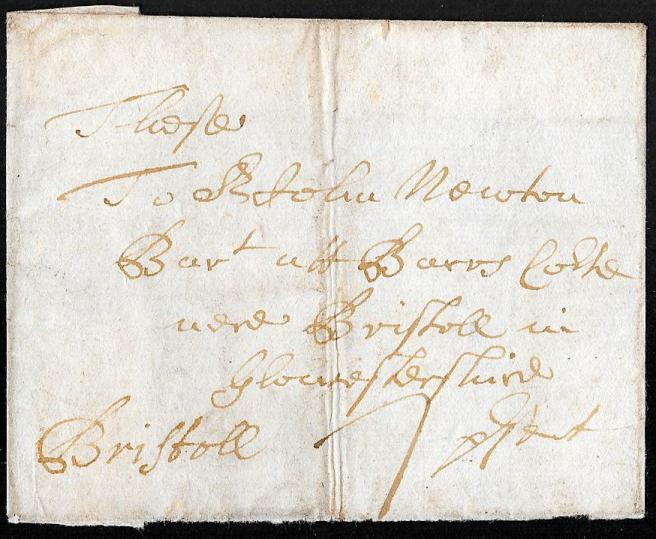 These
To Sr John Newton
Bart att Barrs Corte
nere Bristoll in
Glowrestershire
Bristoll psent